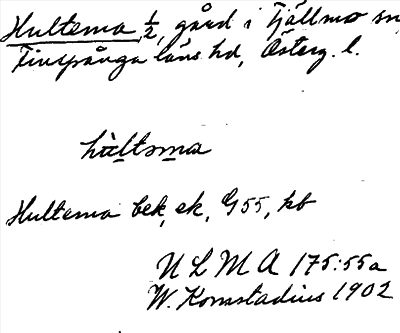 Hultema ½, gård i Tjällmo sn
Finspånga läns hd, Österg. l.
hùltəma
Hultema bek, ek, G55, kb
ULMA 175:55a
W. Konstadius 1902